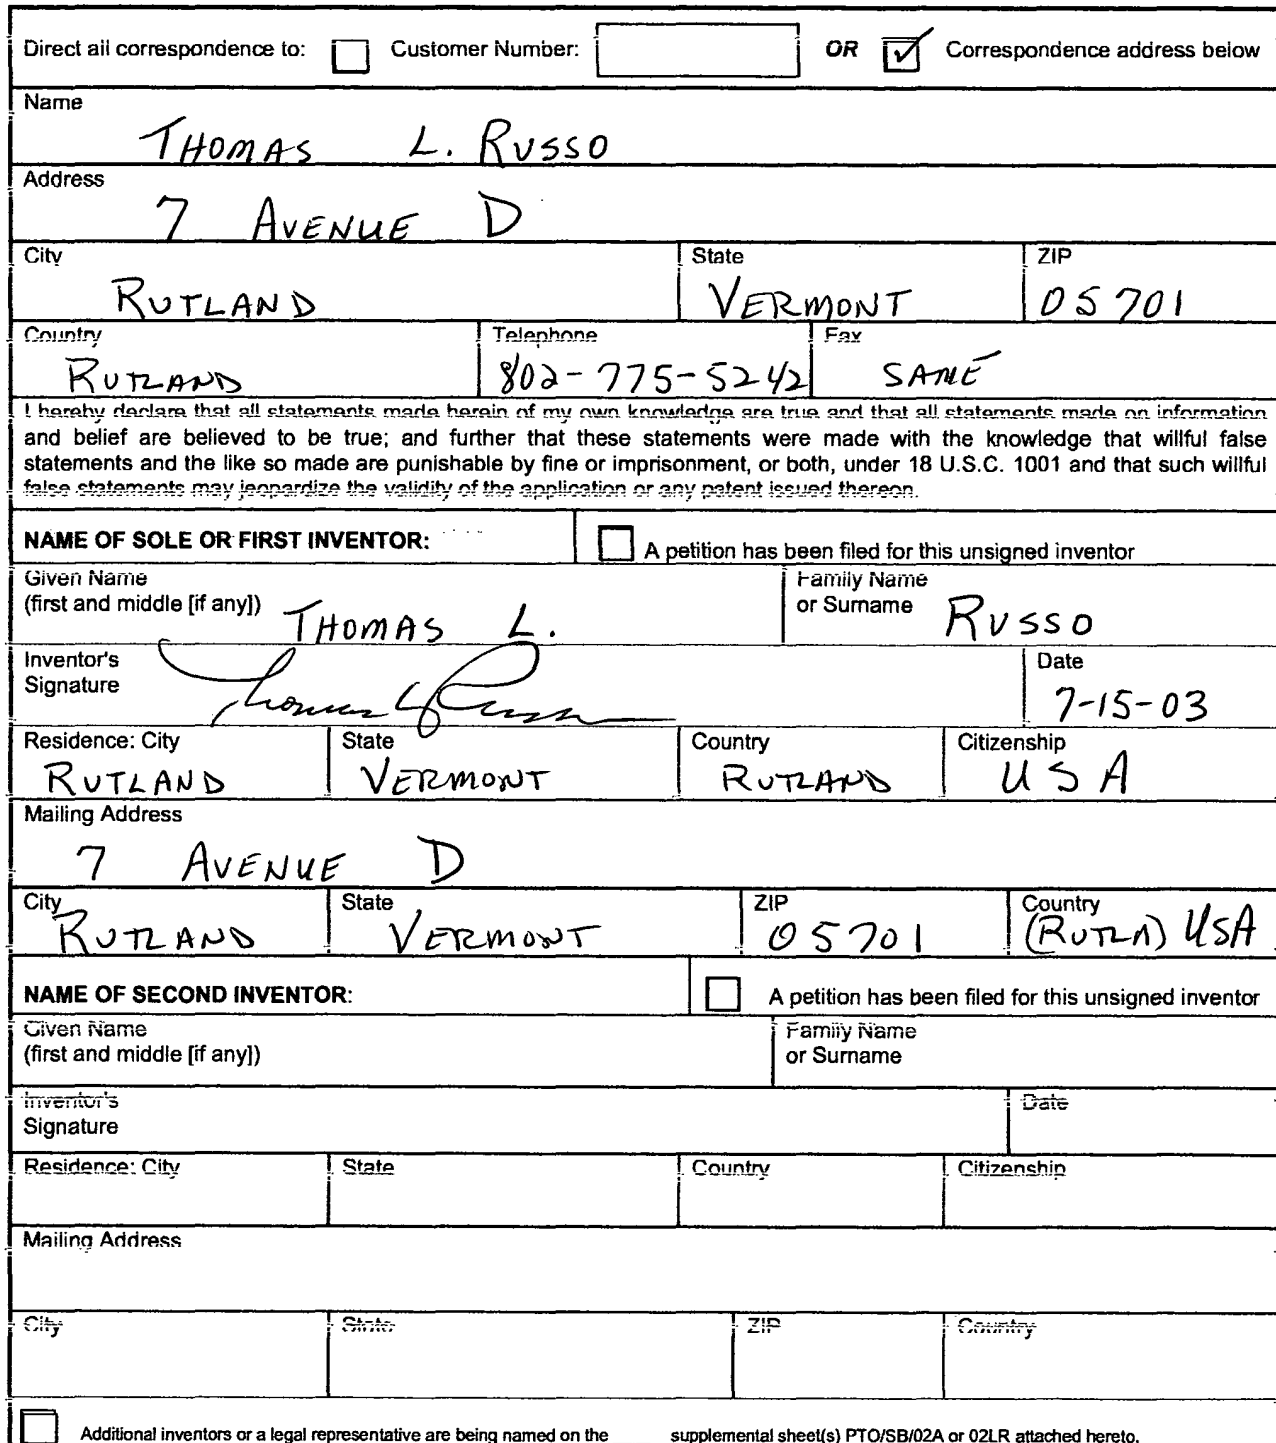 Direct all correspondence to: Customer Number: OR ✓ Correspondence address below
Name
THOMAS L. RUSSO
Address
7 AVENUE D
City State ZIP
RUTLAND VERMONT 05701
Country Telephone Fax
RUTLAND 802-775-5242 SAME
I hereby declare that all statements made herein of my own knowledge are true and that all statements made on information
and belief are believed to be true; and further that these statements were made with the knowledge that willful false
statements and the like so made are punishable by fine or imprisonment, or both, under 18 U.S.C. 1001 and that such willful
false statements may jeopardize the validity of the application or any patent issued thereon.
NAME OF SOLE OR FIRST INVENTOR: A petition has been filed for this unsigned inventor
Given Name Family Name
(first and middle [if any]) THOMAS L. or Surname RUSSO
Inventor's Date
Signature Thomas L Russo 7-15-03
Residence: City State Country Citizenship
RUTLAND VERMONT RUTLAND USA
Mailing Address
7 AVENUE D
City State ZIP Country
RUTLAND VERMONT 05701 (RUTLA) USA
NAME OF SECOND INVENTOR: A petition has been filed for this unsigned inventor
Given Name Family Name
(first and middle [if any]) or Surname
Inventor's Date
Signature
Residence: City State Country Citizenship
Mailing Address
City State ZIP Country
Additional inventors or a legal representative are being named on the supplemental sheet(s) PTO/SB/02A or 02LR attached hereto.